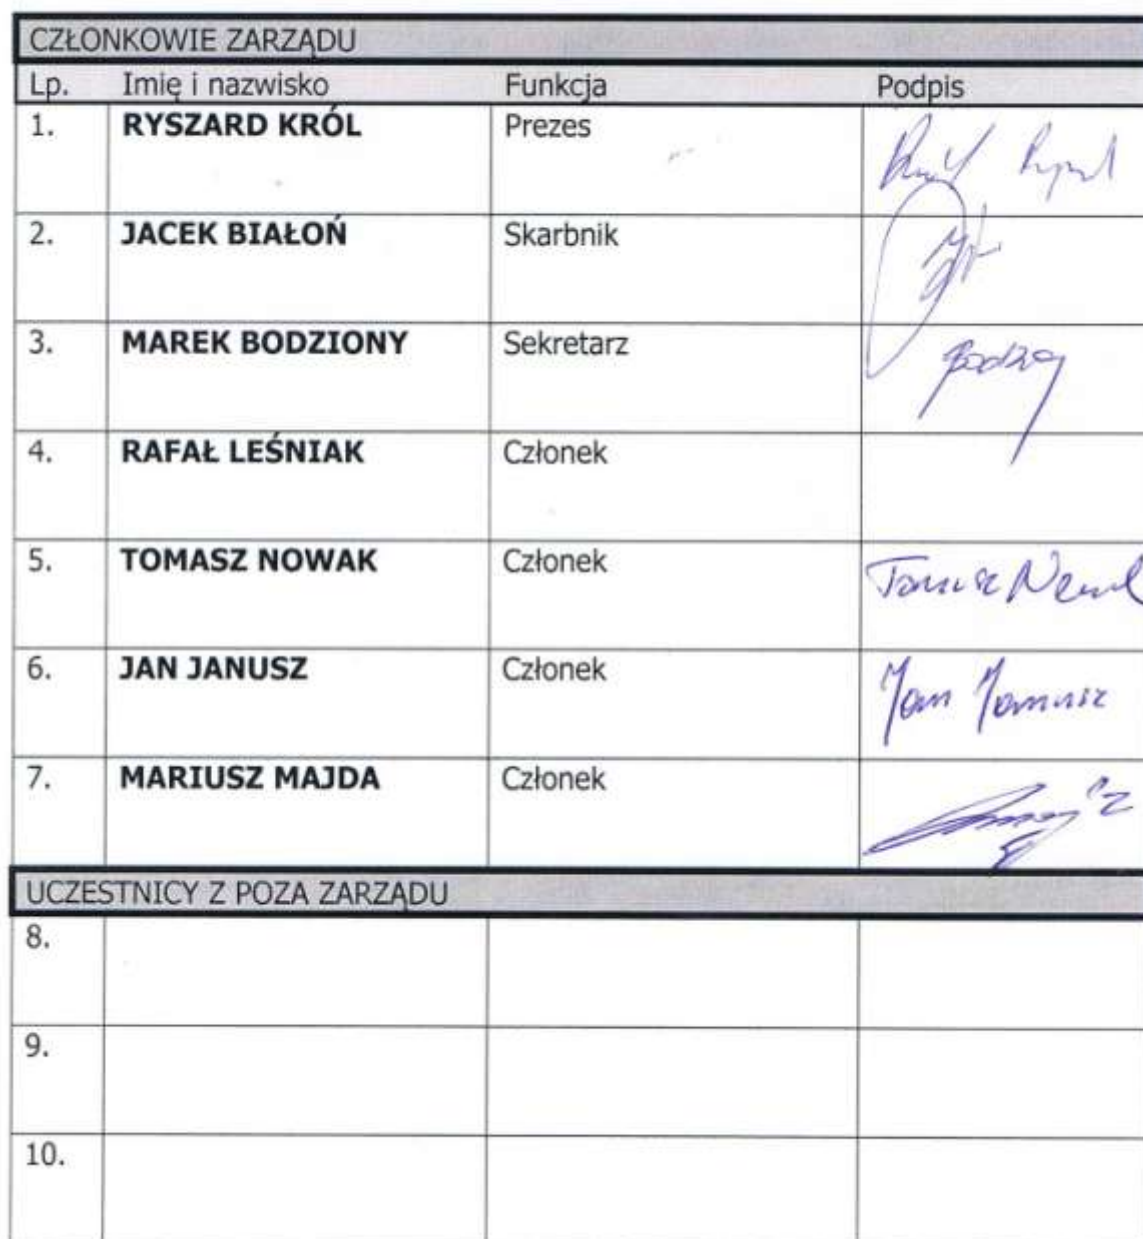 CZŁONKOWIE ZARZĄDU
Lp. Imię i nazwisko Funkcja Podpis
1. RYSZARD KRÓL Prezes
2. JACEK BIAŁOŃ Skarbnik
3. MAREK BODZIONY Sekretarz
4. RAFAŁ LEŚNIAK Członek
5. TOMASZ NOWAK Członek Tomasz Nowak
6. JAN JANUSZ Członek Jan Janusz
7. MARIUSZ MAJDA Członek
UCZESTNICY Z POZA ZARZĄDU
8.
9.
10.